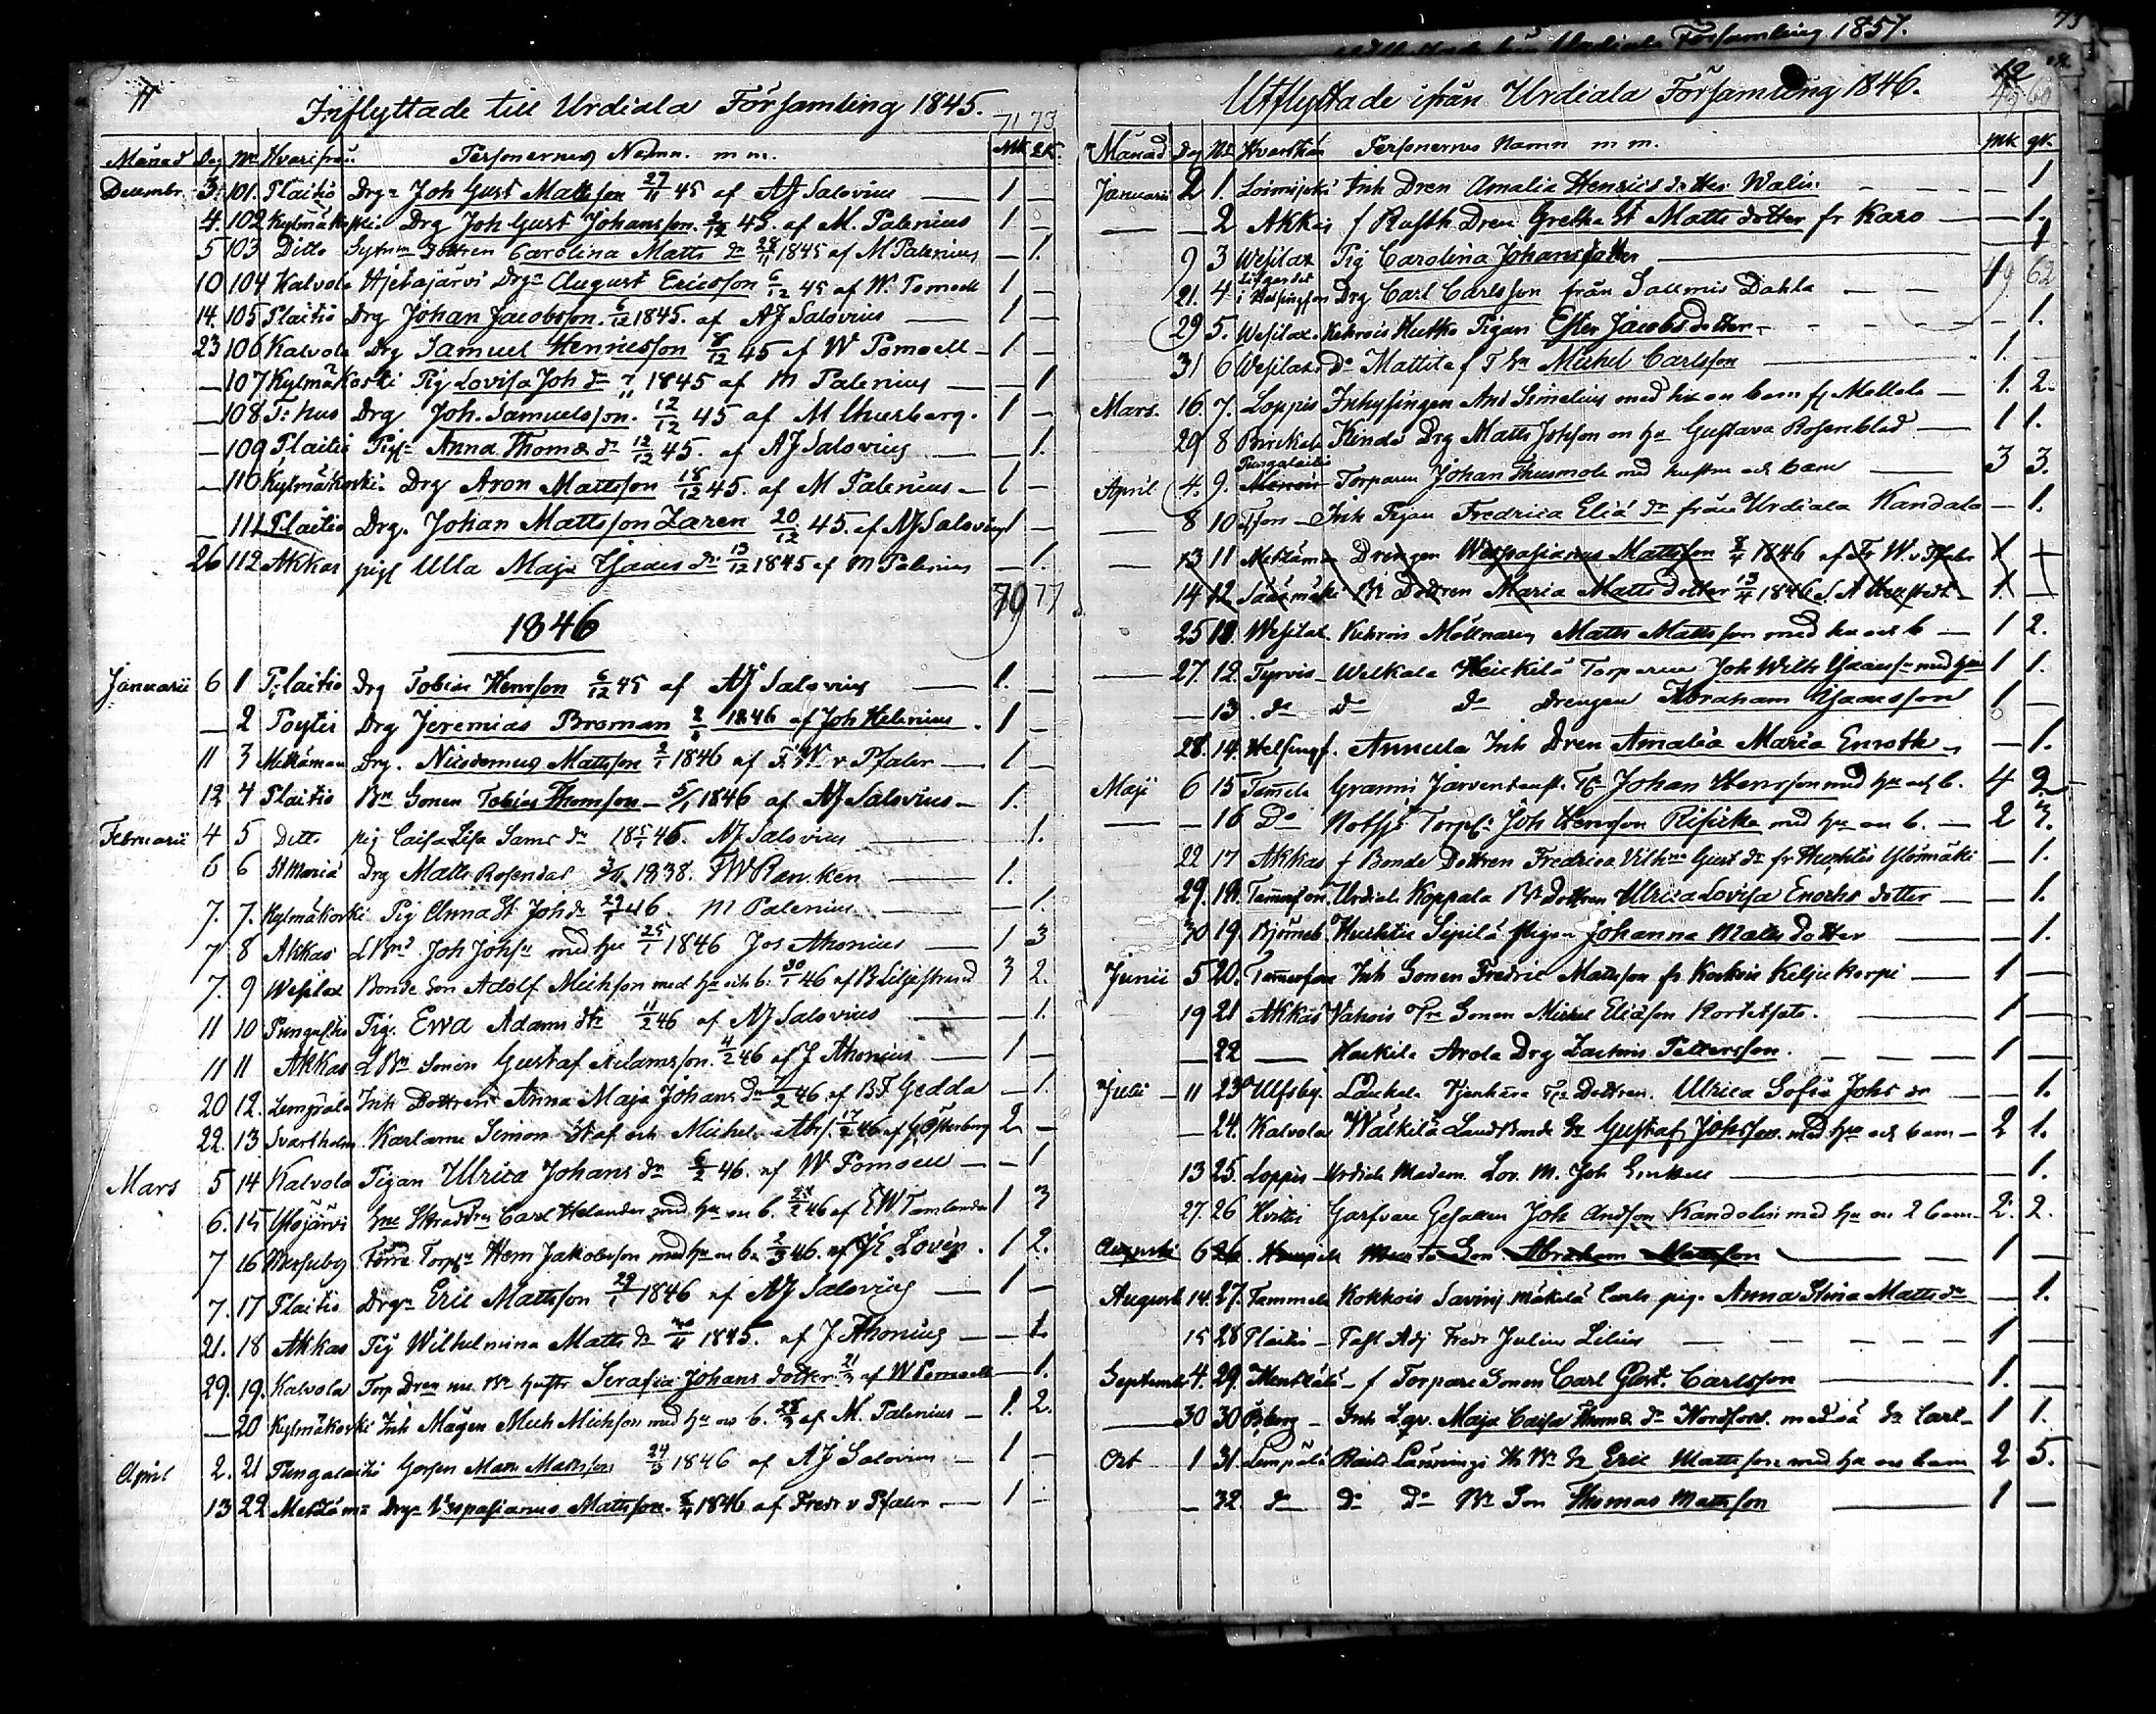 11
Inflyttade till Urdiala Församling 1845.
71 73
Månad Dag No Hvarifrån Personernes Namn. m m. Mk Qk.
Decembr 3. 101. Plaitis Drgn Joh Gust Mattsson 27/11 45 af AJ Salovius 1 —
4. 102 Kylmäkoski Drg Joh Gust Johansson. 2/12 45. af M. Palenius 1 —
5 103 Ditto Dottren Carolina Matts dr 28/11 1845 af M Palenius — 1.
10 104 Kalvola Drgn August Ericsson 6/12 45 af W. Pomoell 1 —
14. 105 Plaitis Drg Johan Jacobsson. 6/12 1845. af AJ Salovius 1 —
23 106 Kalvola Drg Samuel Henricsson 8/12 45 af W Pomoell 1 —
— 107 Kylmäkoski Pig Lovisa Joh dr 1845 af M Palenius — 1
— 108 T: hus Drg Joh. Samuelsson. 12/12 45 af M 1 —
— 109 Plaitis Pig Anna Thomæ dr 12/12 45. af AJ Salovius — 1.
— 110 Kylmäkoski. Drg Aron Mattsson 18/12 45. af M Palenius 1 —
— 111 Plaitis Drg. Johan Mattsson Laren 20/12 45. af AJ Salovius 1 —
26 112 Akkas pig Ulla Maja Isaacs dr 13/12 1845 af M Palenius — 1.
79 77
1846
Januarii 6 1 Plaitis Drg Tobias Henrsson 6/12 45 af AJ Salovius 1. —
— 2 Poytis Drg Jeremias Broman 2/1 1846 af Joh Helenius 1 —
11 3 Metzämaa Drg. Nicodemus Mattsson 2/1 1846 af F. W. v Pfaler 1 —
12 4 Plaitis Bn Sonen Tobias Thomsson 5/1 1846 af AJ Salovius 1. —
Februarii 4 5 Ditto pig Caisa Lisa Sams dr 46. AJ Salovius — 1.
6 6 St Maria Drg Matts Rosendal 1838. FW Ranken 1.
7. 7. Kylmäkoski Pig Anna St Joh dr 29/1 46. M Palenius — 1.
7 8 Akkas Joh Johsn med hu 25/1 1846 Jos Ahonius 1 3
7. 9 Wesilax Bonde Son Adolf Michson med hu och b. 30/1 46 af B Liljestrand 3 2.
11 10 Pungaltio Pig. Ewa Adams dtr 11/2 46 af AJ Salovius — 1.
11 11 Akkas Sonen Gustaf Adamsson. 4/2 46 af J Ahonius 1 —
20 12. Lempäälä Inh Dottren Anna Maja Johans dr 7/2 46 af B. F. Gedda — 1.
22. 13 Svartholm. Karlarne Simon och Michel 17/2 46 af Österberg 2 —
Mars 5 14 Kalvola Pigan Ulrica Johans dr 6/2 46. af W Pomoell — 1
6. 15 Ylöjärvi Carl Helander med hu o b. 46 af 1 3
7 16 Förra Torpn Hem Jakobsson med hu o b. 2/3 46. af Lovén. 1 2.
7. 17 Plaitis Drgn Eric Mattsson 29/1 1846 af AJ Salovius 1 —
21. 18 Akkas Pig Wilhelmina Matts dr 1845. af J Ahonius — 1.
29. 19. Kalvola Torp Dren Serafia Johans dotter 21/3 af W Pomoell — 1.
— 20 Kylmäkoski Inh Mågen Mich Michson med hu o b. 28/3 af M. Palenius 1. 2.
April 2. 21 Pungalaitio Matts Mattsson 24/3 1846 af AJ Salovius 1 —
13 22 Metzäma Drgn Vespasianus Mattsson. 8/4 1846 af Fredr v Pfaler 1 —
Församling 1857.
73
Utflyttade ifrån Urdiala Församling 1846.
12
Månad Dag No Hvarthän Personernes Namn m m. Mk qk.
Januarii 2 1. Loimijoki Inh Dren Amalia Henrics dotter Walin — 1
— 2 Akkas f Rusth Dren Gretha St Matts dotter fr Karo — 1.
9 3 Wesilax Pig Carolina Johansdotter — 1
21. 4 i Helsingfors Drg Carl Carlsson från Salmis Dahla 1
49 62
29 5. Wesilax Huttko Pigan Ester Jacobs dotter — 1.
31 6 Wesilax Do Mattila f T Sn Michel Carlsson 1. —
Mars. 16. 7. Loppis Inhysingen And Simelius med hu o barn fr Mellola 1. 2.
29 8 Birckala Drg Matts Johsson o hu Gustava Rosenblad 1 1.
April 4. 9. Pungalaitio Torparen Johan Thusmola med hustru och barn 3 3.
8 10 Tfors Inh Pigan Fredrica Eliæ dr från Urdiala Kandala — 1.
— 13 11 Metzäma Drengen Wespasianus Mattsson 8/4 1846 af Fr W. v Pfaler 1 —
14 12 Sääxmäki Bn Dottren Maria Matts dotter 13/4 1846 1. —
25 11. Wesilax Möllnaren Matts Mattsson med hu och b 1 2.
— 27. 12. Tyrvis Heickilä Torparen Joh Wilh Isaacsn med hu 1 1.
— 13. do do do Drengen Abraham Isaacsson 1 —
28. 14. Helsingf. Annula Inh Dren Amalia Maria Enroth — 1.
Maji 6 15 Tamela Järventaust Johan Henrsson med hu och b. 4 2
— 16 Do Notsjö Torp Joh Henrsson Risicka med hu o b. 2 3.
22 17 Akkas f Bonde Dottren Fredrica Vilhna Gust dr fr Huhtis Ylösmäki — 1.
29. 18. Tamerfors Urdiala Koppala Bn Dottren Ulrica Lovisa Enochs dotter — 1.
30 19. Björneb. Huhtis Sipilä Pigan Johanna Matts dotter — 1.
Junii 5 20. Tamerfors Inh Sonen Fredric Mattsson fr 1 —
19 21 Akkas Vahois Sonen Michel Eliæson 1 —
— 22 — Drg Zachris Pettersson. 1 —
Julii 11 23 Ulfsby. Dottren. Ulrica Sofia Johs dr — 1.
— 24. Kalvola Wälkilä Landbonde Gustaf Johsson med hu och barn 2 1.
13 25. Loppis Urdiala Madam Lov. M. Joh — 1.
27. 26 Hvittis Garfvare Gesällen Joh Andsson Kandolin med hu o 2 barn 2. 2.
Augusti 6 26 Son Abraham Mattsson 1 —
Augusti 14. 27. Tammela Kokkois Mäkilä pig. Anna Stina Matts dr — 1.
15 28 Plaitis Past Adj Fredr Julius Lilius 1 —
Septembr 4. 29. f Torpare Sonen Carl Gust. Carlsson 1. —
— 30 30 Inh Maja Caisa Thomæ dr Nordfors Carl 1 1.
Oct 1 31. Lempälä Eric Mattsson med hu o barn 2 5.
— 32 do do do Bn Son Thomas Mattsson 1 —